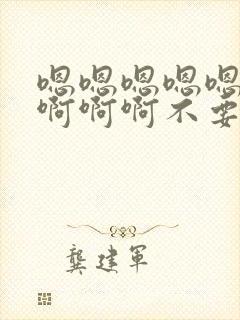 嗯嗯嗯嗯嗯
啊啊啊不要
龔建军